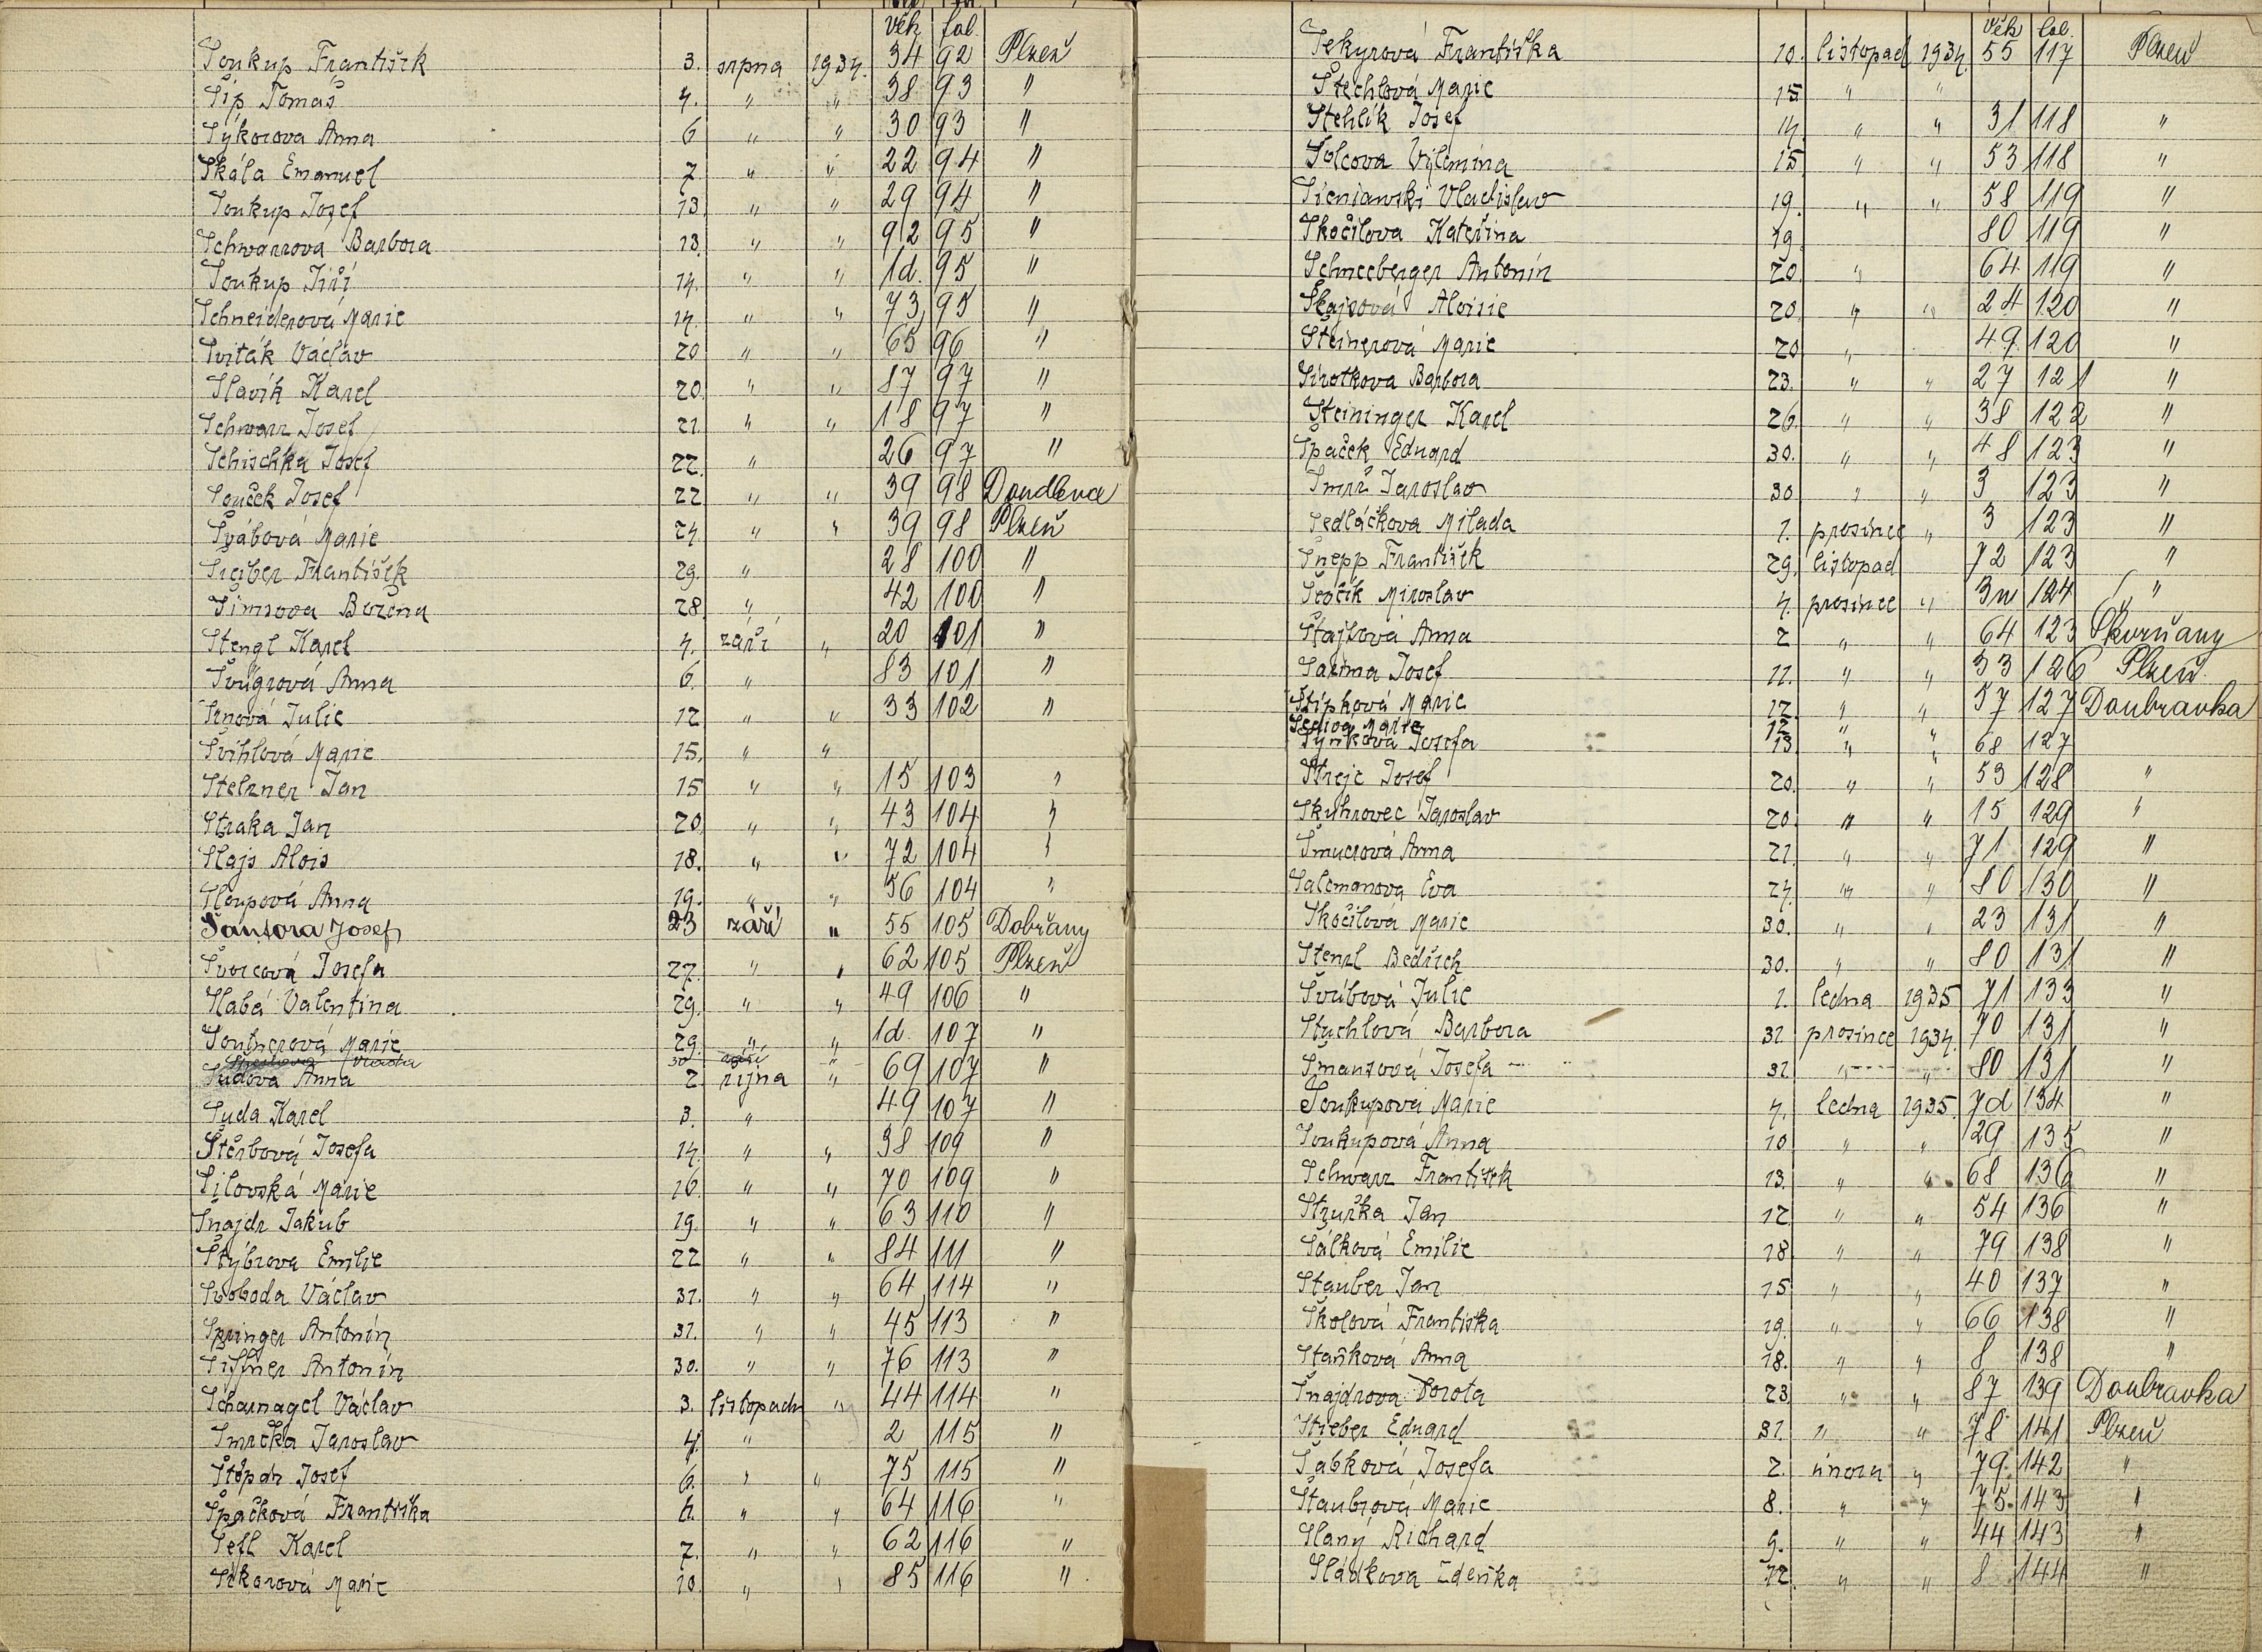 věk fol.
Soukup František 3. srpna 1934. 34 92 Plzeň
Šíp Tomáš 4. " " 38 93 "
Sýkorova Anna 6 " " 30 93 "
Skála Emanuel 7. " " 22 94 "
Soukup Josef 13. " " 29 94 "
Schwarzova Barbora 13. " " 92 95 "
Soukup Jiří 14. " " 1d. 95 "
Schneiderová Marie 14. " " 73 95 "
Sviták Václav 20 " " 65 96 "
Slavík Karel 20. " " 87 97 "
Schwarz Josef 21. " " 18 97 "
Schischka Josef 22. " 26 97 "
Souček Josef 22 " " 39 98 Doudlevce
Švábová Marie 24. " " 39 98 Plzeň
Šreiber František 29. " 28 100 "
Šimsova Božena 28. " 42 100 "
Stengl Karel 4. září " 20 101 "
Švůgrová Anna 6. " 83 101 "
Srnová Julie 12 " " 33 102 "
Švihlová Marie 15. " "
Stelzner Jan 15 " " 15 103 "
Straka Jan 20. " " 43 104 "
Slajs Alois 18. " " 72 104 "
Sloupová Anna 19. " " 56 104 "
Šantora Josef 23 září " 55 105 Dobřany
Švorcová Josefa 27. " " 62 105 Plzeň
Slabá Valentina 29. " " 49 106 "
Soutnerová Marie 29. " " 1d. 107 "
30 září " Vlasta
Sudova Anna 2. října " 69 107 "
Suda Karel 3. " 49 107 "
Štěrbová Josefa 14. " " 38 109 "
Šilovská Marie 16. " " 70 109 "
Šnajdr Jakub 19. " " 63 110 "
Štýbrova Emilie 22 " " 84 111 "
Svoboda Václav 31. " " 64 114 "
Springer Antonín 31. " " 45 113 "
Siffner Antonín 30. " " 76 113 "
Scharnagel Václav 3. listopadu " 44 114 "
Smrčka Jaroslav 4. " 2 115 "
Štěpár Josef 6. " " 75 115 "
Špačková Františka 6. " " 64 116 "
Šefl Karel 7. " " 62 116 "
Sikorová Marie 10. " " 85 116 "
Věk fol.
Sekyrová Františka 10. listopad 1934. 55 117 Plzeň
Štechlová Marie 15. " "
Stehlík Josef 14 " " 31 118 "
Šolcova Vilemína 15. " " 53 118 "
Sieniawski Vladislav 19. " " 58 119 "
Skočilova Kateřina 19 80 119 "
Schneeberger Antonín 20. " 64 119 "
Škajsová Aloisie 20. " " 24 120 "
Šteinerová Marie 20 " 49. 120 "
Sirotkova Barbora 23. " " 27 121 "
Šteininger Karel 26. " " 38 122 "
Špaček Eduard 30. " " 48 123 "
Šmrž Jaroslav 30 " " 3 123 "
Sedláčkova Milada 1. prosince " 3 123 "
Šnepp František 29. listopad 72 123 "
Ščočik Miroslav 4. prosince " 3n 124 "
Štajfová Anna 2 " " 64 123 Skvrňany
Saxma Josef 11. " " 33 126 Plzeň
Štípková Marie 12. " " 57 127 Doubravka
Šediva Marie 12 " "
Synková Josefa 13 " " 68 127
Štrejc Josef 20. " " 53 128 "
Skuhrovec Jaroslav 20. " " 15 129 "
Šmucrová Anna 21. " " 71 129 "
Salemanova Eva 24. " " 80 130 "
Skočilová Marie 30. " " 23 131 "
Stenzl Bedřich 30. " " 80 131 "
Švúbová Julie 1. ledna 1935 71 133 "
Stuchlová Barbora 31 prosince 1934. 70 131 "
Šmausová Josefa 31 " " 80 131 "
Soukupová Marie 4. ledna 1935. 7d 134 "
Soukupová Anna 10 " " 29 135 "
Schwarz František 13. " " 68 136 "
Stružka Jan 12. " " 54 136 "
Sálková Emilie 18 " " 79 138 "
Stauber Jan 15 " " 40 137 "
Školová Františka 19. " " 66 138 "
Staňková Anna 18. " " 8 138 "
Šnajdrova Dorota 23 " " 87 139 Doubravka
Strieber Eduard 31. " " 78 141 Plzeň
Šabková Josefa 2. února " 79. 142 "
Štaubrová Marie 8. " " 75. 143 "
Slaný Richard 9. " " 44 143 "
Sládkova Zdeňka 12. " " 8 144 "